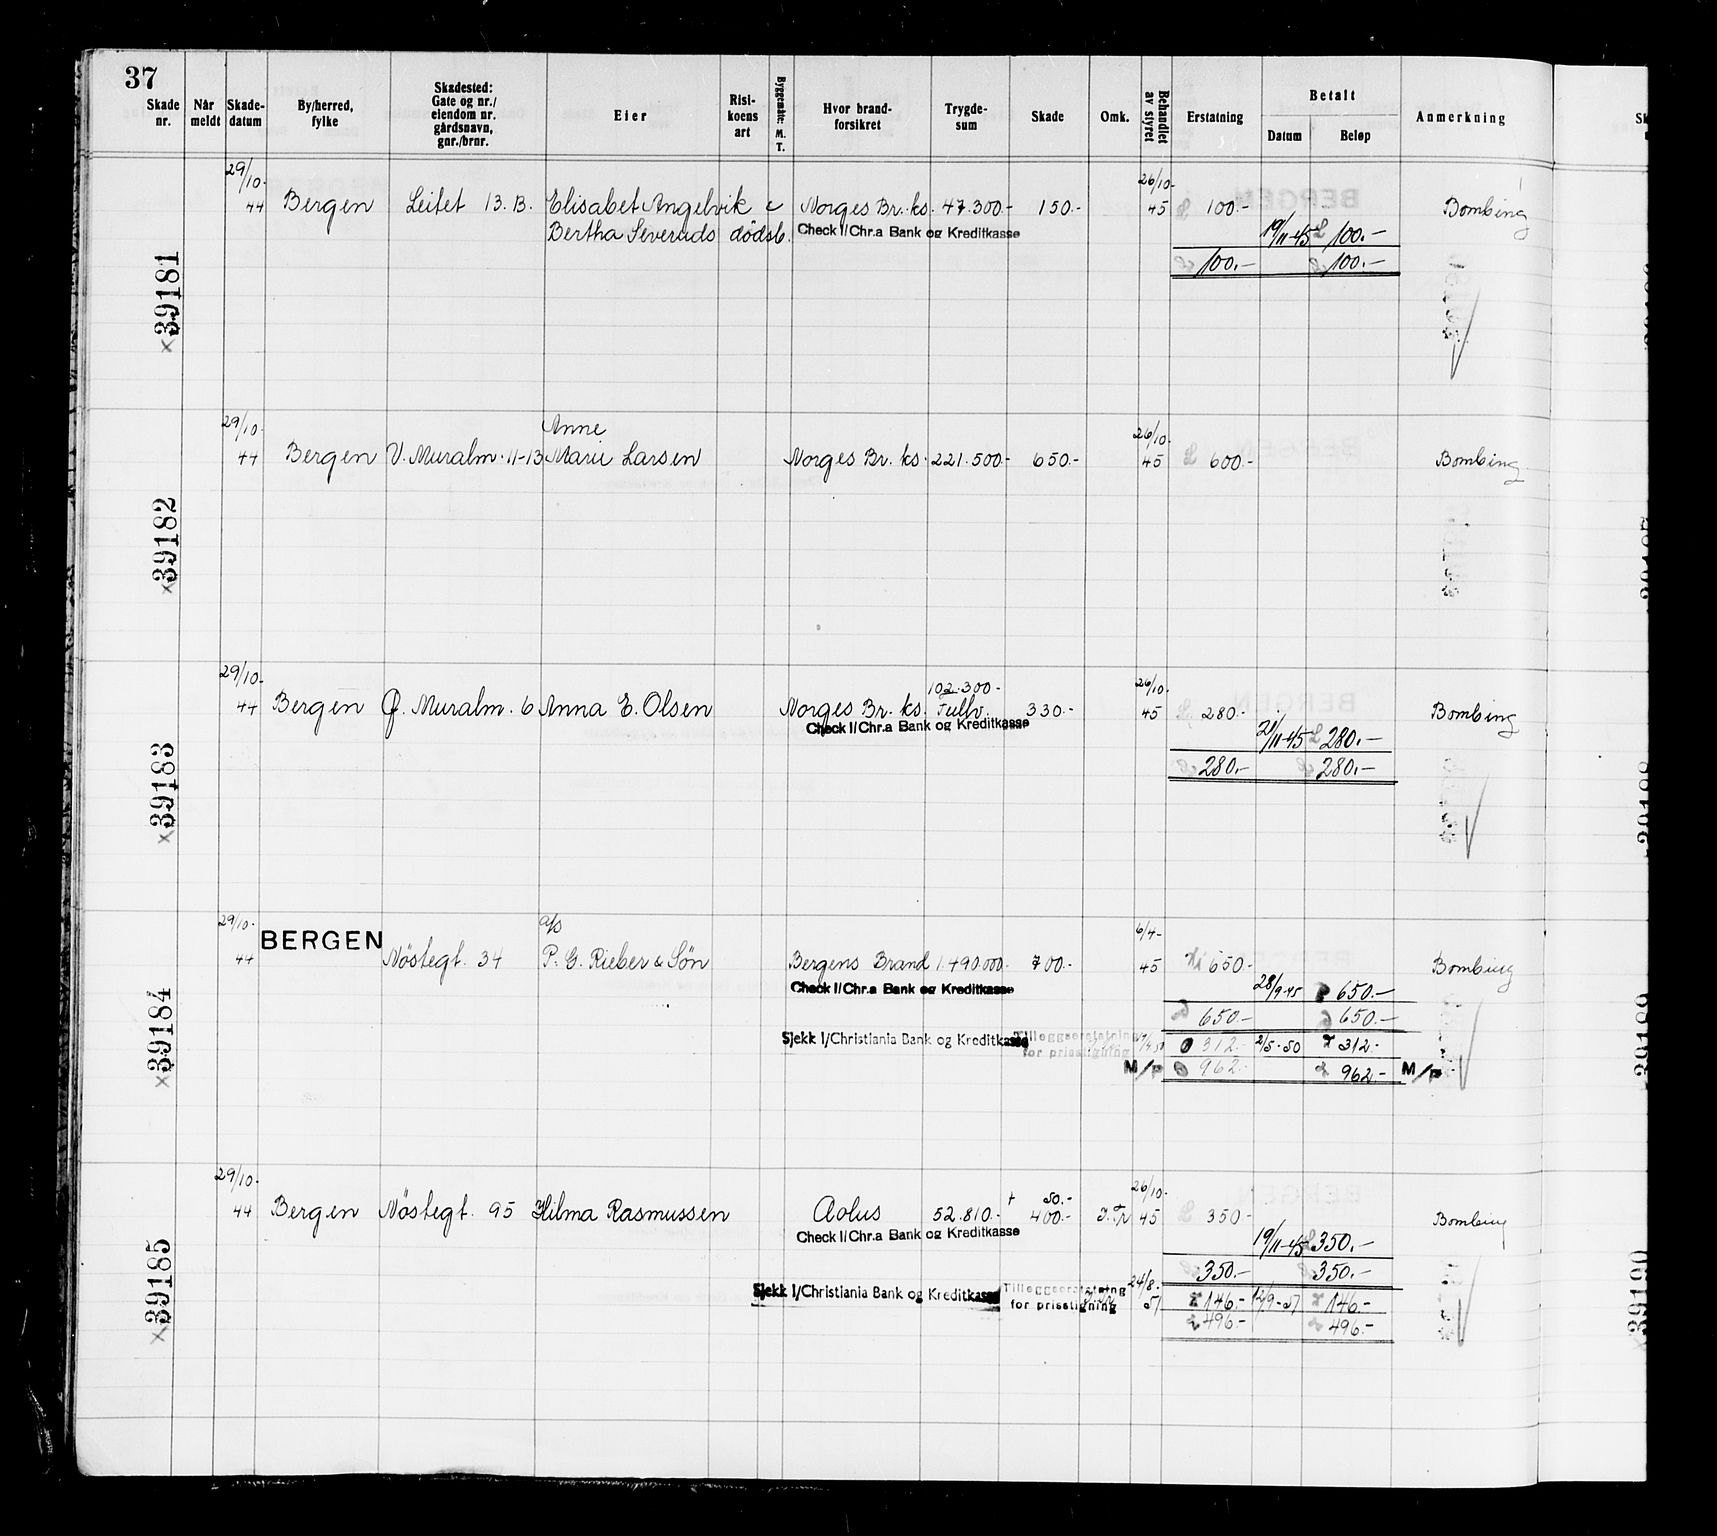 37
Skade nr.
Når meldt
Skade-datum
By/herred, fylke
Skadested: Gate og nr./ eiendom nr. gårdsnavn, gnr./brnr.
Eier
Risi-koens art
Byggemåte: M. T.
Hvor brand-forsikret
Trygde-sum
Skade
Omk.
Behandlet av styret
Erstatning
Betalt
Datum
Beløp
Anmerkning
29/10-
26/10-
44 Bergen Leitet 13.B. Elisabet Angelvik & Norges Br. ks. 47.300.- 150.- 45 100.- Bombing
Bertha Severuds dødsb. Check I/Chr.a Bank og Kreditkasse 19/11-45 100.-
100.- 100.-
×39181
29/10- Anne 26/10-
44 Bergen V. Muralm. 11-13 Marie Larsen Norges Br. ks. 221.500.- 650.- 45 600.- Bombing
×39182
29/10- 102.300- 26/10-
44 Bergen Ø. Muralm. 6 Anna E. Olsen Norges Br. ks. Fullv. 330.- 45 280.- Bombing
Check I/Chr.a Bank og Kreditkasse 21/11-45 280.-
280.- 280.-
×39183
29/10- a/s 6/4-
BERGEN
44 Nöstegt. 34 P. G. Rieber & Søn Bergens Brand 1.490.000.- 700.- 45 650.- Bombing
Check I/Chr.a Bank og Kreditkasse 28/9-45 650.-
650.- 650.-
Sjekk I/Christiania Bank og Kreditkasse Tilleggserstatning for prisstigning 312.- 2/5-50 312.-
M/P 962.- 962.- M/P
×39184
29/10- + 50.- 26/10-
44 Bergen Nöstegt. 95 Hilma Rasmussen Aolus 52.810.- 400.- 45 350.- Bombing
Check I/Chr.a Bank og Kreditkasse 19/11-45 350.-
350.- 350.-
Sjekk I/Christiania Bank og Kreditkasse Tilleggserstatning for prisstigning 24/8-51 146.- 12/9-51 146.-
496.- 496.-
×39185
39190